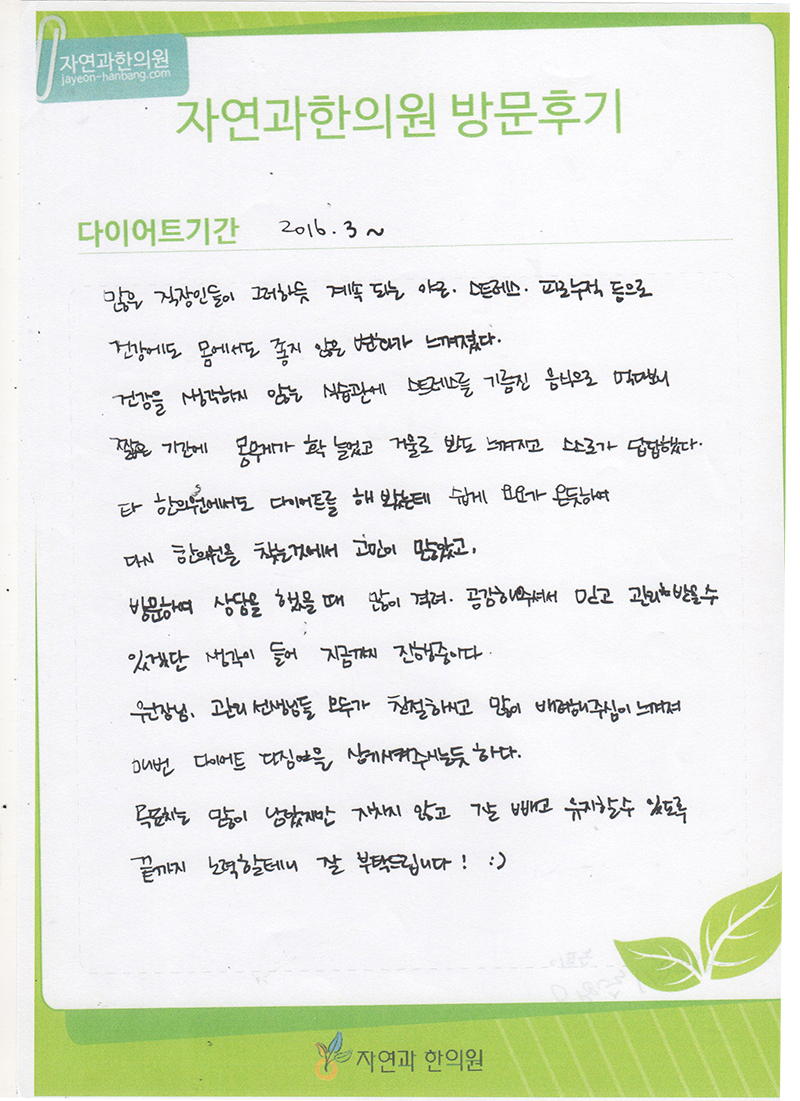 자연과한의원
jayeon-hanbang.com
자연과한의원 방문후기
다이어트기간 2016. 3 ~
많은 직장인들이 그러하듯 계속 되는 야근. 스트레스. 피로누적 등으로
건강에도 몸에서도 좋지 않은 변화가 느껴졌다.
건강을 생각하지 않는 식습관에 스트레스를 기름진 음식으로 먹다보니
짧은 기간에 몸무게가 확 늘었고 거울로 봐도 느껴지고 스스로가 답답했다.
타 한의원에서도 다이어트를 해 봤는데 쉽게 요요가 온듯하여
다시 한의원을 찾는것에서 고민이 많았고,
방문하여 상담을 했을때 많이 격려. 공감해주셔서 믿고 관리받을수
있겠단 생각이 들어 지금까지 진행중이다.
원장님, 관리선생님들 모두가 친절하시고 많이 배려해주심이 느껴져
매번 다이어트 다짐을 상기시켜주시는듯 하다.
목표치는 많이 남았지만 지치지 않고 잘 빼고 유지할수 있도록
끝까지 노력할테니 잘 부탁드립니다! :)
자연과 한의원